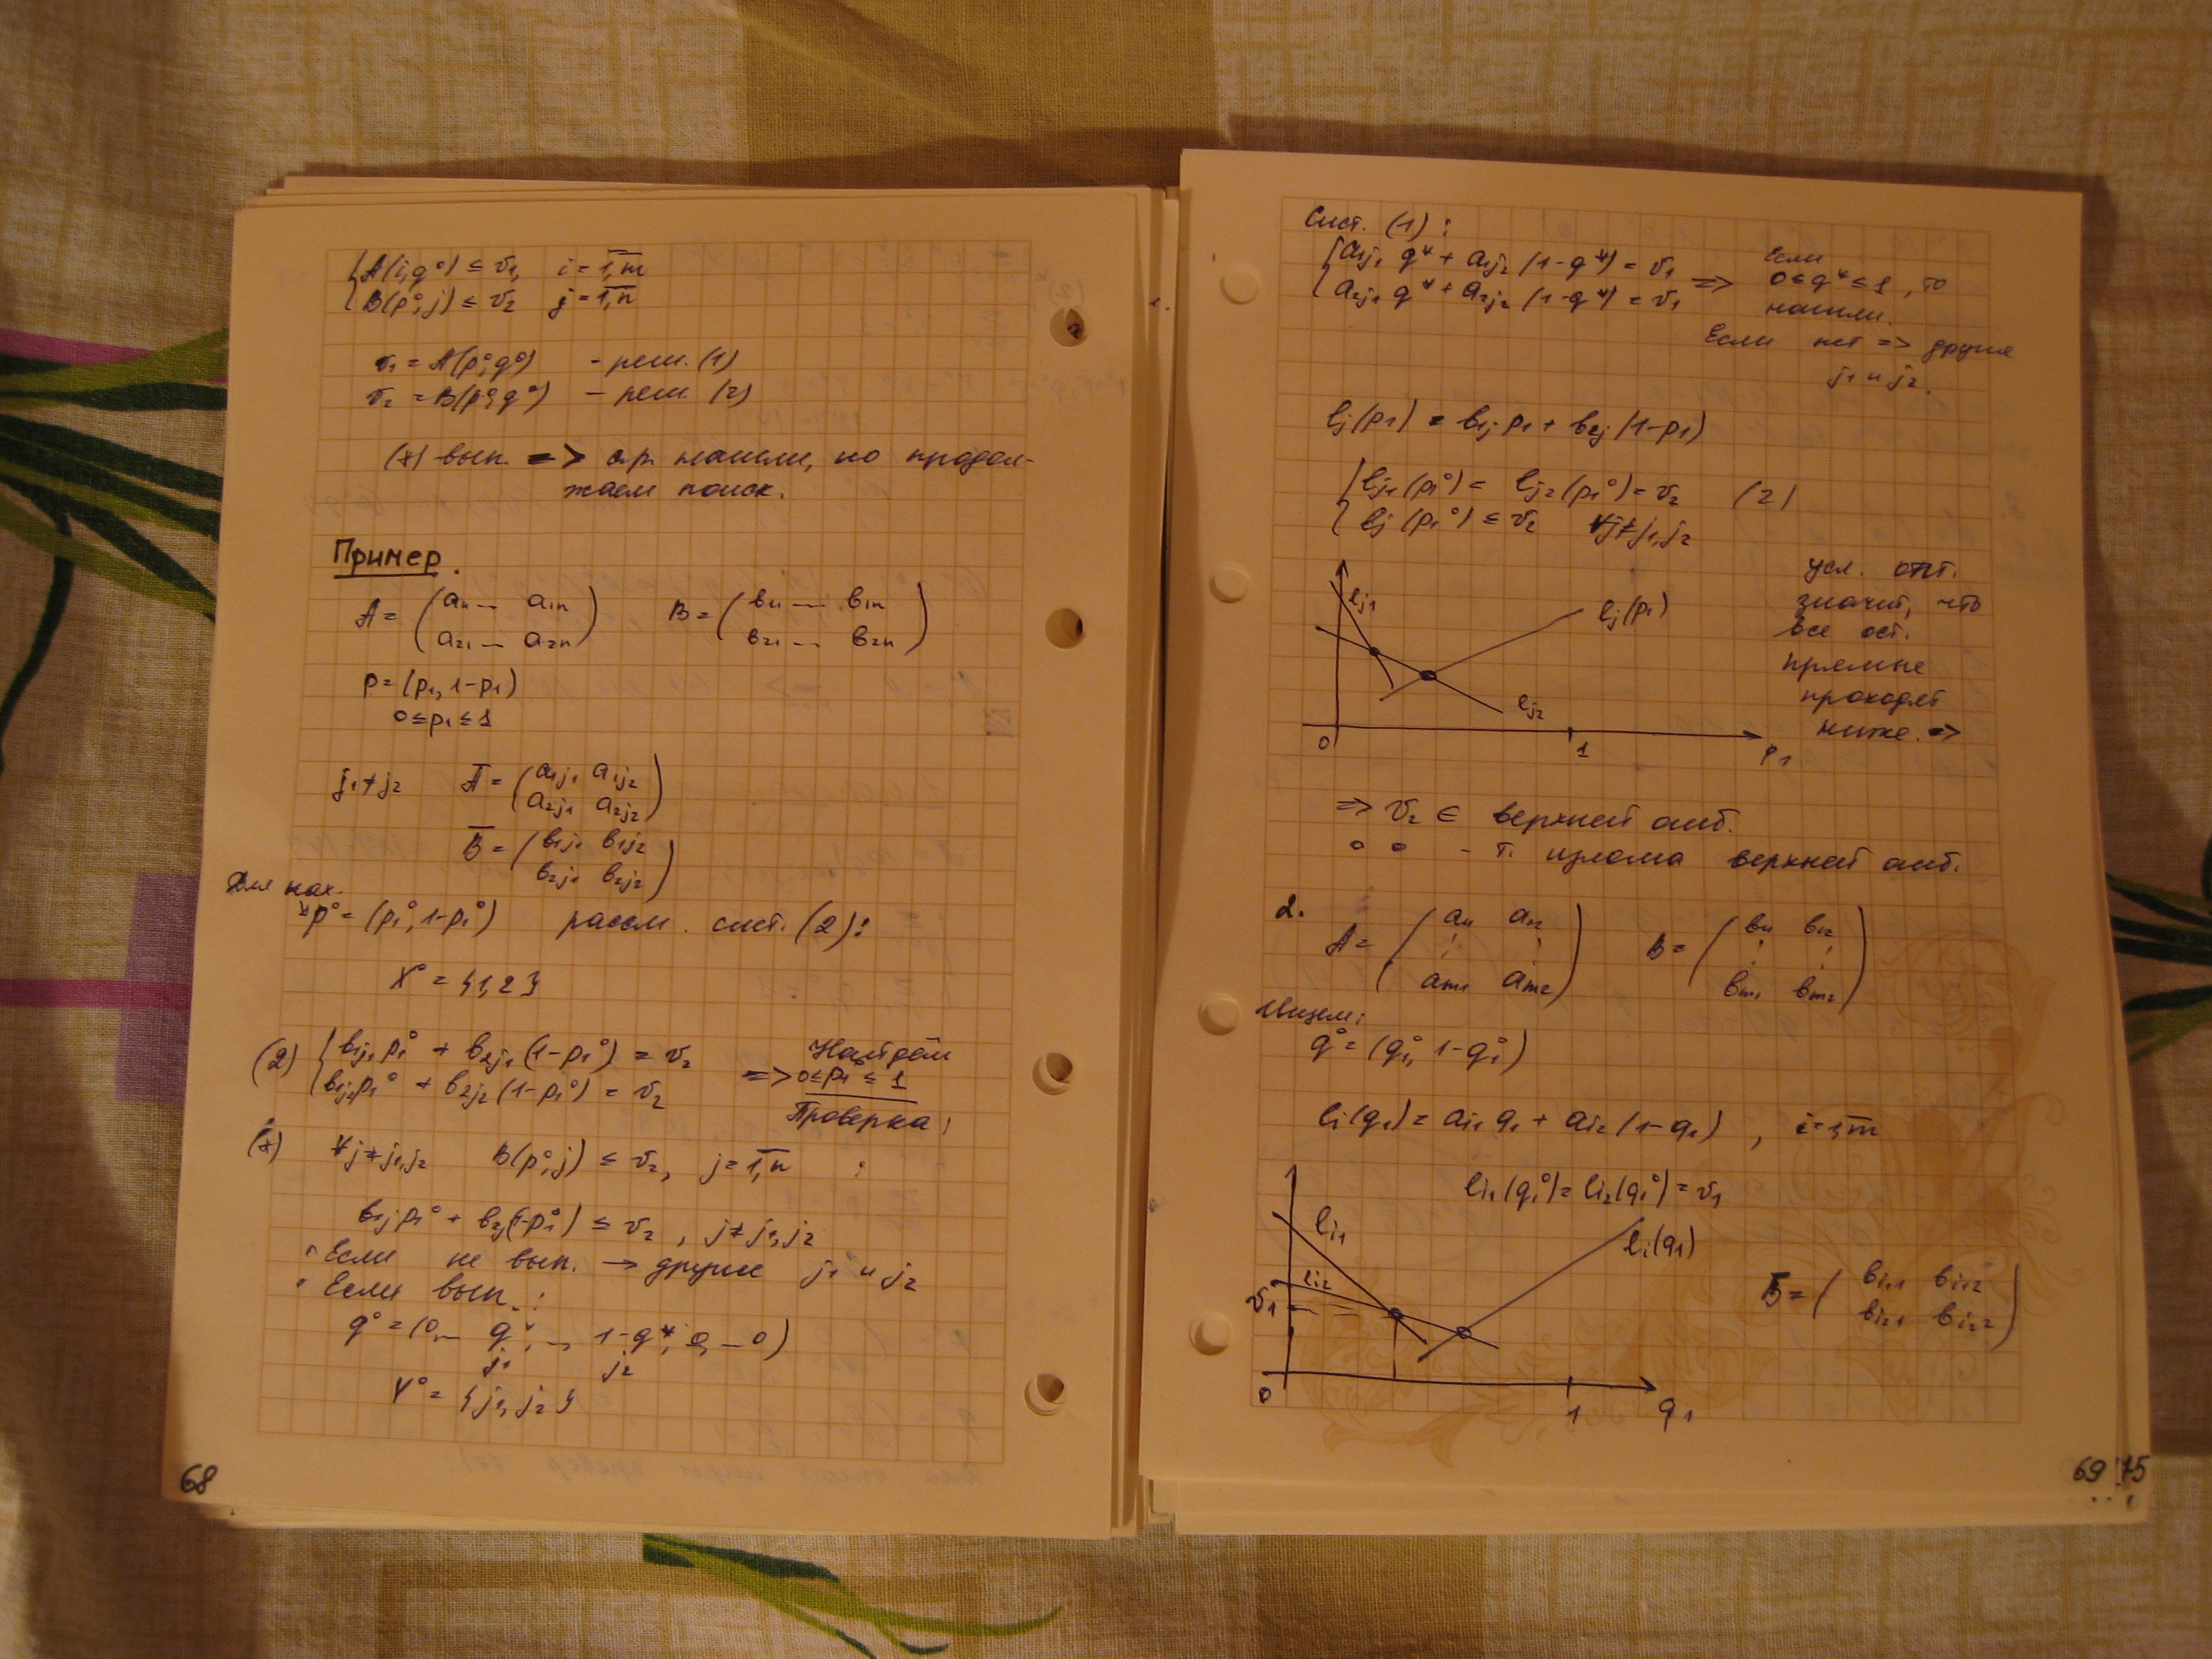 { A(i,q°) ≤ v₁, i = 1,m
{ B(p°,j) ≤ v₂ j = 1,n
v₁ = A(p°,q°) - реш. (1)
v₂ = B(p°,q°) - реш. (2)
(*) вып. => с.р. нашли, но продол-
жаем поиск.
Пример.
A = (a₁₁ ... a₁ₙ) B = (b₁₁ ... b₁ₙ)
(a₂₁ ... a₂ₙ) (b₂₁ ... b₂ₙ)
p = (p₁, 1-p₁)
0 ≤ p₁ ≤ 1
j₁ ≠ j₂ Ā = (a₁j₁ a₁j₂)
(a₂j₁ a₂j₂)
B̄ = (b₁j₁ b₁j₂)
(b₂j₁ b₂j₂)
Для нах.
p° = (p₁°, 1-p₁°) рассм. сист. (2):
X° = {1,2}
(2) { b₁j₁ p₁° + b₂j₁ (1-p₁°) = v₂ Найдём
{ b₁j₂ p₁° + b₂j₂ (1-p₁°) = v₂ => 0 ≤ p₁ ≤ 1
Проверка:
(*) ∀j ≠ j₁,j₂ B(p°,j) ≤ v₂, j = 1,n :
b₁j p₁° + b₂j (1-p₁°) ≤ v₂, j ≠ j₁,j₂
• Если не вып. → другие j₁ и j₂
• Если вып. :
q° = (0, ... q*, ..., 1-q*, 0, ... 0)
j₁ j₂
Y° = {j₁, j₂}
68
Сист. (1):
{ a₁j₁ q* + a₁j₂ (1-q*) = v₁ => Если
{ a₂j₁ q* + a₂j₂ (1-q*) = v₁ 0 ≤ q* ≤ 1, то
нашли.
Если нет => другие
j₁ и j₂.
lj(p₁) = b₁j p₁ + b₂j (1-p₁)
{ lj₁(p₁°) = lj₂(p₁°) = v₂ (2)
{ lj(p₁°) ≤ v₂ ∀j ≠ j₁,j₂
lj₁
lj(p₁)
lj₂
0 1 p₁
усл. опт.
значит, что
все ост.
прямые
проходят
ниже. =>
=> v₂ ∈ верхней огиб.
∘ ∘ - т. излома верхней огиб.
2.
A = (a₁₁ a₁₂) B = (b₁₁ b₁₂)
(⋮ ⋮) (⋮ ⋮)
(aₘ₁ aₘ₂) (bₘ₁ bₘ₂)
Ищем:
q° = (q₁°, 1-q₁°)
li(q₁) = ai₁ q₁ + ai₂ (1-q₁), i = 1,m
li₁(q₁°) = li₂(q₁°) = v₁
li₁
li₂
li(q₁)
v₁
0 1 q₁
B̄ = (bi₁1 bi₁2)
(bi₂1 bi₂2)
69 75